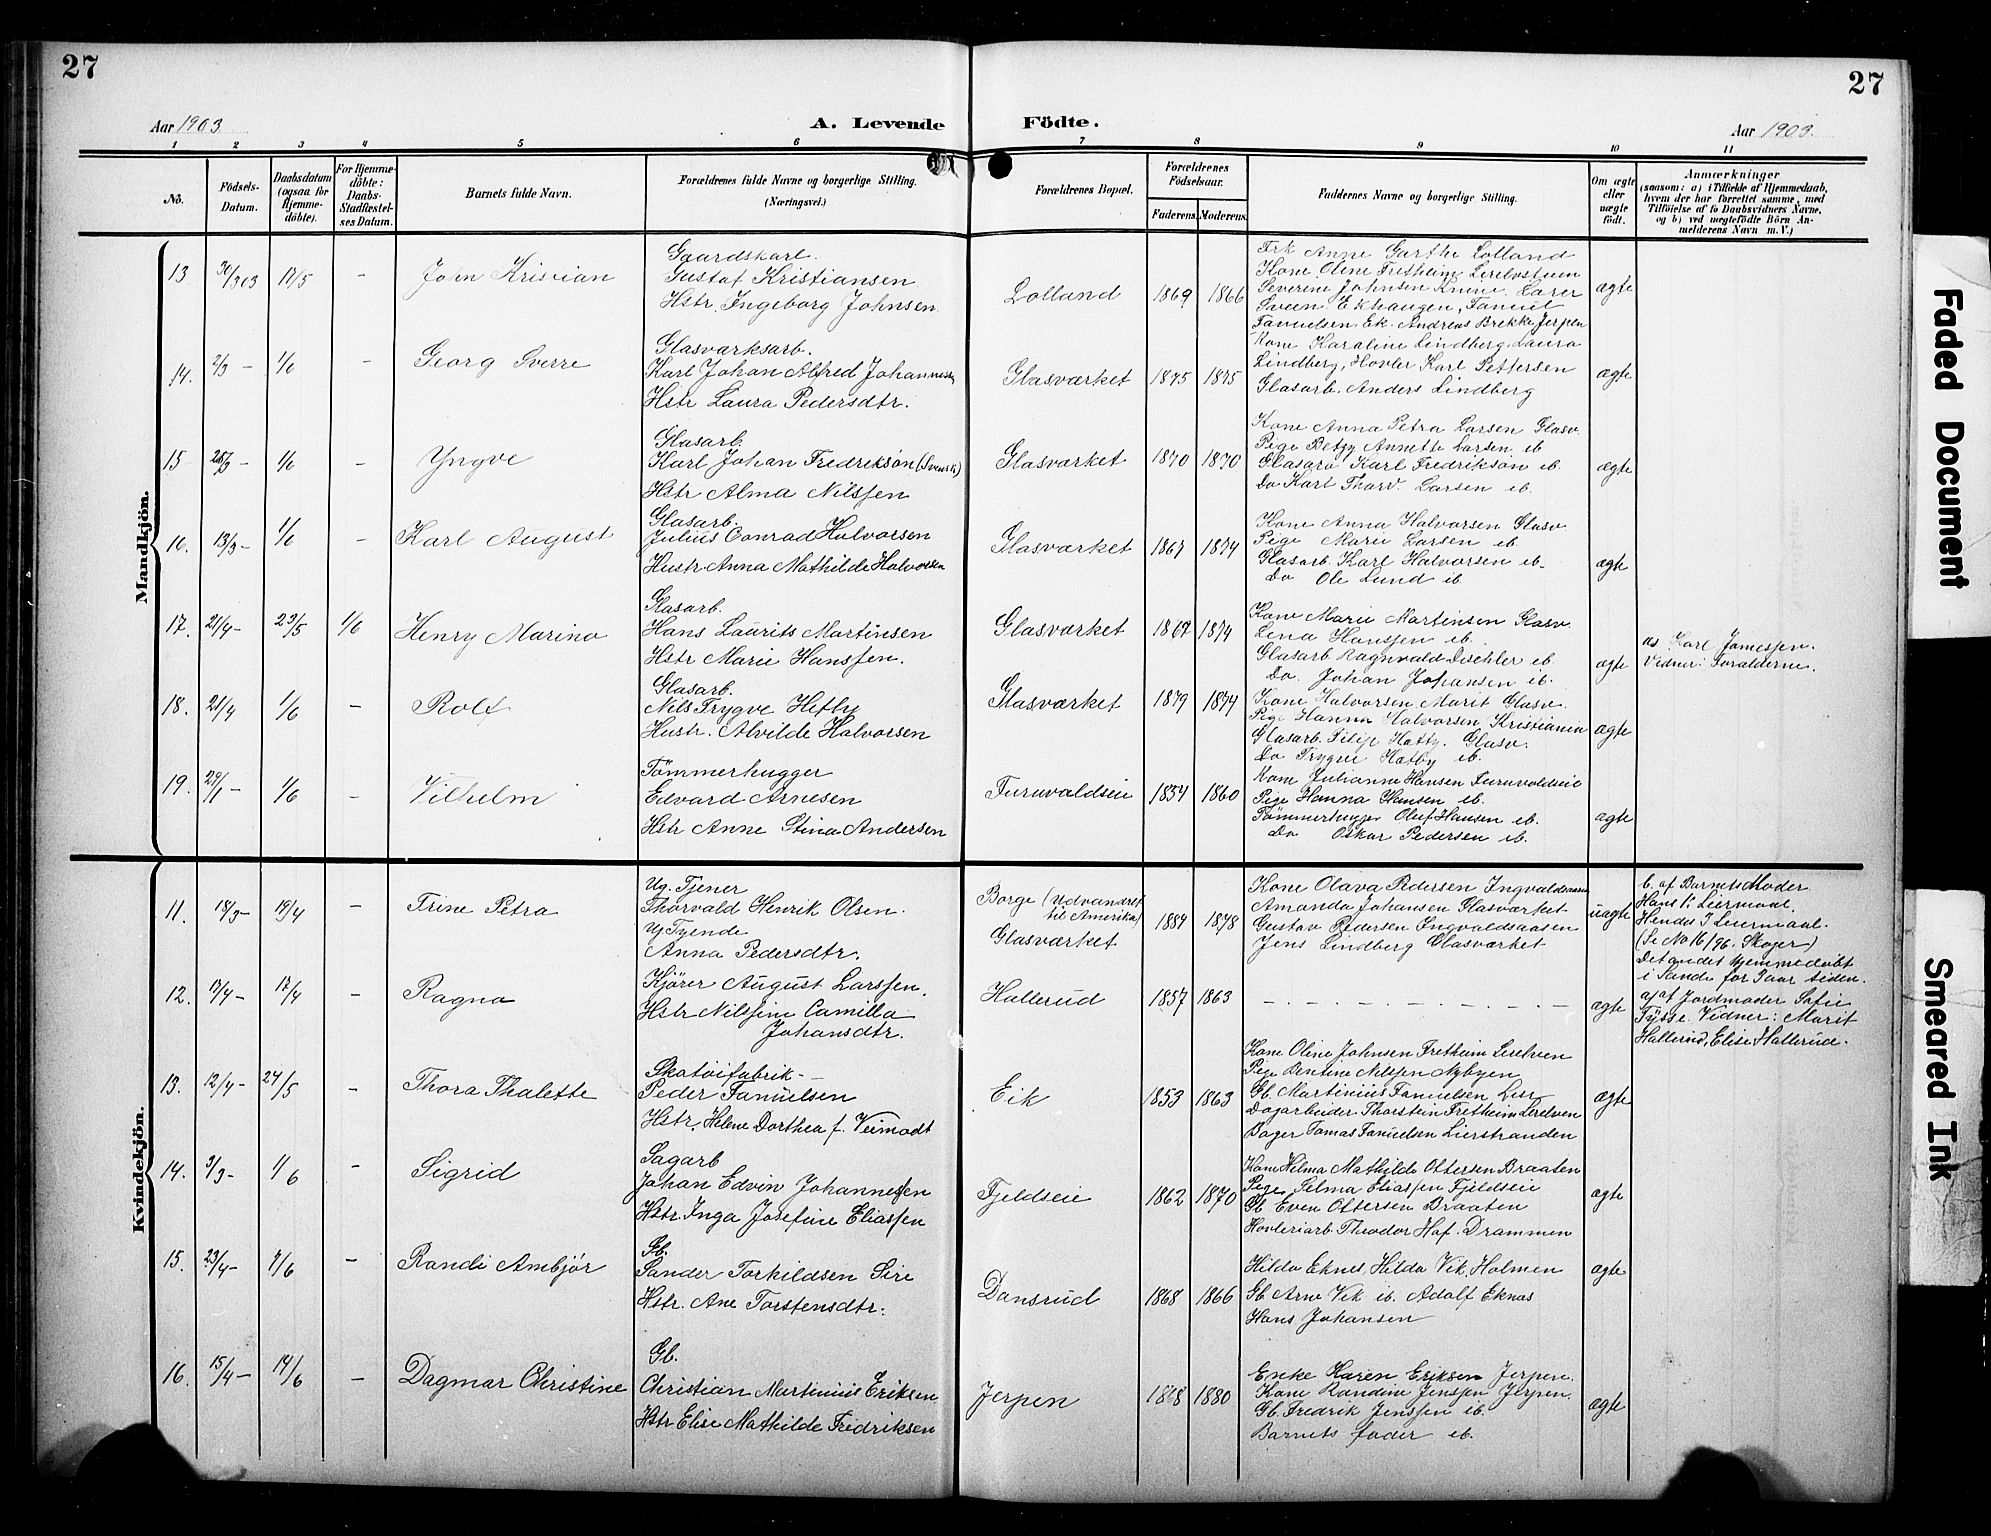 27
27
Aar 1903.
A. Levende
Födte.
Aar 1903.
1 2 3 4 5 6 7 8 9 10 11
No.
Födsels-
Datum.
Daabsdatum
(ogsaa for
Hjemme-
döbte).
For Hjemme-
döbte:
Daabs-
Stadfæstel-
ses Datum.
Barnets fulde Navn.
Forældrenes fulde Navne og borgerlige Stilling.
(Næringsvei.)
Forældrenes Bopæl.
Forældrenes
Födselsaar.
Faderens.
Moderens.
Faddernes Navne og borgerlige Stilling.
Om ægte
eller
uægte
födt.
Anmærkninger
(saasom: a) i Tilfælde af Hjemmedaab,
hvem der har forrettet samme, med
Tilföielse af to Daabsvidners Navne,
og b) ved uægtefödte Börn An-
melderens Navn m. V.)
Mandkjön.
13 30/3 03 17/5 –
John Kristian
Gaardskarl.
Gustaf Kristiansen
Hstr. Ingeborg Johnsen
Lolland
1869 1866
Frk Anne Garthe Lolland
Kone Oline Fretheim,
Severine Johnsen
Sveen Ekhaugen,
Fanuelsen Ek. Andreas Brekke Jerpen
ægte
14. 2/3 – 1/6 –
Georg Sverre
Glasværksarb.
Karl Johan Alfred Johannessen
Hstr Laura Pedersdtr.
Glasværket
1875 1875
Kone Karaline Lindberg, Laura
Lindberg, Hovler Karl Pettersen
Glasarb. Anders Lindberg
ægte
15 1/6 –
Yngve
Glasarb.
Karl Johan Fredrikson (Svensk)
Hstr Alma Nilssen
Glasværket
1870 1870
Kone Anna Petra Larsen Glasv.
Pige Betzy Annette Larsen ib
Glasarb Karl Fredrikson ib.
Do Karl Thorv. Larsen ib.
ægte
16. 13/3 – 1/6 –
Karl August
Glasarb.
Julius Conrad Halvorsen
Hustr. Anna Mathilde Halvorsen
Glasværket
1867 1874
Kone Anna Halvorsen Glasv
Pige Marie Larsen ib
Glasarb. Karl Halvorsen ib.
Do Ole Lund ib.
ægte
17. 21/4 – 23/5 1/6
Henry Marino
Glasarb.
Hans Laurits Martinsen
Hstr Marie Hanssen.
Glasværket
1867 1874
Kone Marie Martinsen Glasv.
Lena Hanssen ib.
Glasarb Ragnvald Dschler ib.
Do. Johan Johansen ib.
ægte
a) Karl Jamessen.
Vidner: Forælderne.
18. 21/4 1/6 –
Rolf
Glasarb.
Nils Trygve Hetby
Hustr. Alvilde Halvorsen
Glasværket
1879 1874
Kone Halvorsen, Marit Glasv.
Pige Hanna Halvorsen, Kristiania
Glasarb. Filip Hætby. Glasv.
Do Trygve Hætby ib.
ægte
19. 29/1 – 1/6 –
Vilhelm
Tömmerhugger
Edvard Arnesen
Hstr Anne Stina Andersen
Furuvaldseie
1854 1860
Kone Julianne Hansen Furuvoldseie
Pige Hanna Hansen ib.
Tömmerhugger Oluf Hansen ib.
Do Oskar Pedersen ib.
ægte
Kvindekjön.
11. 18/3 – 19/4 –
Trine Petra
Ug. Tjener
Thorvald Henrik Olsen.
Ug Tyende
Anna Pedersdtr.
Borge (Udvandret
til Amerika)
Glasværket
1884 1878
Kone Olava Pedersen Ingvaldsaasen
Amanda Johansen Glasværket
Gustav Pedersen Ingvaldsaasen
Jens Lindberg Glasværket
uægte
b. af Barnets Moder
Hans 1ste Leiermaal.
Hendes 2 Leiermaal.
(Se No 16/96. Skoger)
Det andet hjemmedøbt
i Sande for 2 aar siden.
12. 17/4 – 17/4 –
Ragna
Kjörer August Larssen.
Hstr Nilssine Camilla
Johansdtr.
Hallerud
1857 1863
– – – – – –
ægte
a) af Jordmoder Sofie
Tysse. Vidner: Marit
Hallerud, Elise Hallerud.
13. 12/4 – 24/5 –
Thora Thalette
Skotöifabrik –
Peder Fanuelsen
Hstr. Helene Dorthea f. Veimodt
Eik
1853 1863
Kone Oline Johnsen Fretheim Lierelven
Pige Bentine Nilssen Nybyen
Gb. Martinius Fanuelsen Lier
Dagarbeider Thorstein Fretheim Lierelven
Bager Tomas Fanuelsen Lierstranden
ægte
14. 3/3 – 1/6 –
Sigrid
Sagarb
Johan Edvin Johannessen
Hstr. Inga Josefine Eliassen
Fjeldseie
1862 1870
Kone Hilma Mathilde Ottersen Braaten
Pige Selma Eliassen Fjeldseie
Gb Even Ottersen Braaten
Theodor Hof. Drammen
ægte
15. 23/4 – 7/6 –
Randi Ambjör
Gb.
Sander Torkildsen Sire
Hstr. Ane Torstensdtr.
Dansrud
1868 1866
Hilda Eknes, Hilda Vik, Holmen
Gb Arne Vik ib. Adolf Eknas
Hans Johansen
ægte
16. 15/4 – 14/6 –
Dagmar Christine
Gb.
Christian Martinius Eriksen
Hstr Elise Mathilde Fredriksen
Jerpen
1868 1880
Enke Karen Eriksen Jerpen.
Kone Randine Jenssen Jerpen.
Gb. Fredrik Jenssen ib.
Barnets fader ib.
ægte
Faded Document
Smeared Ink